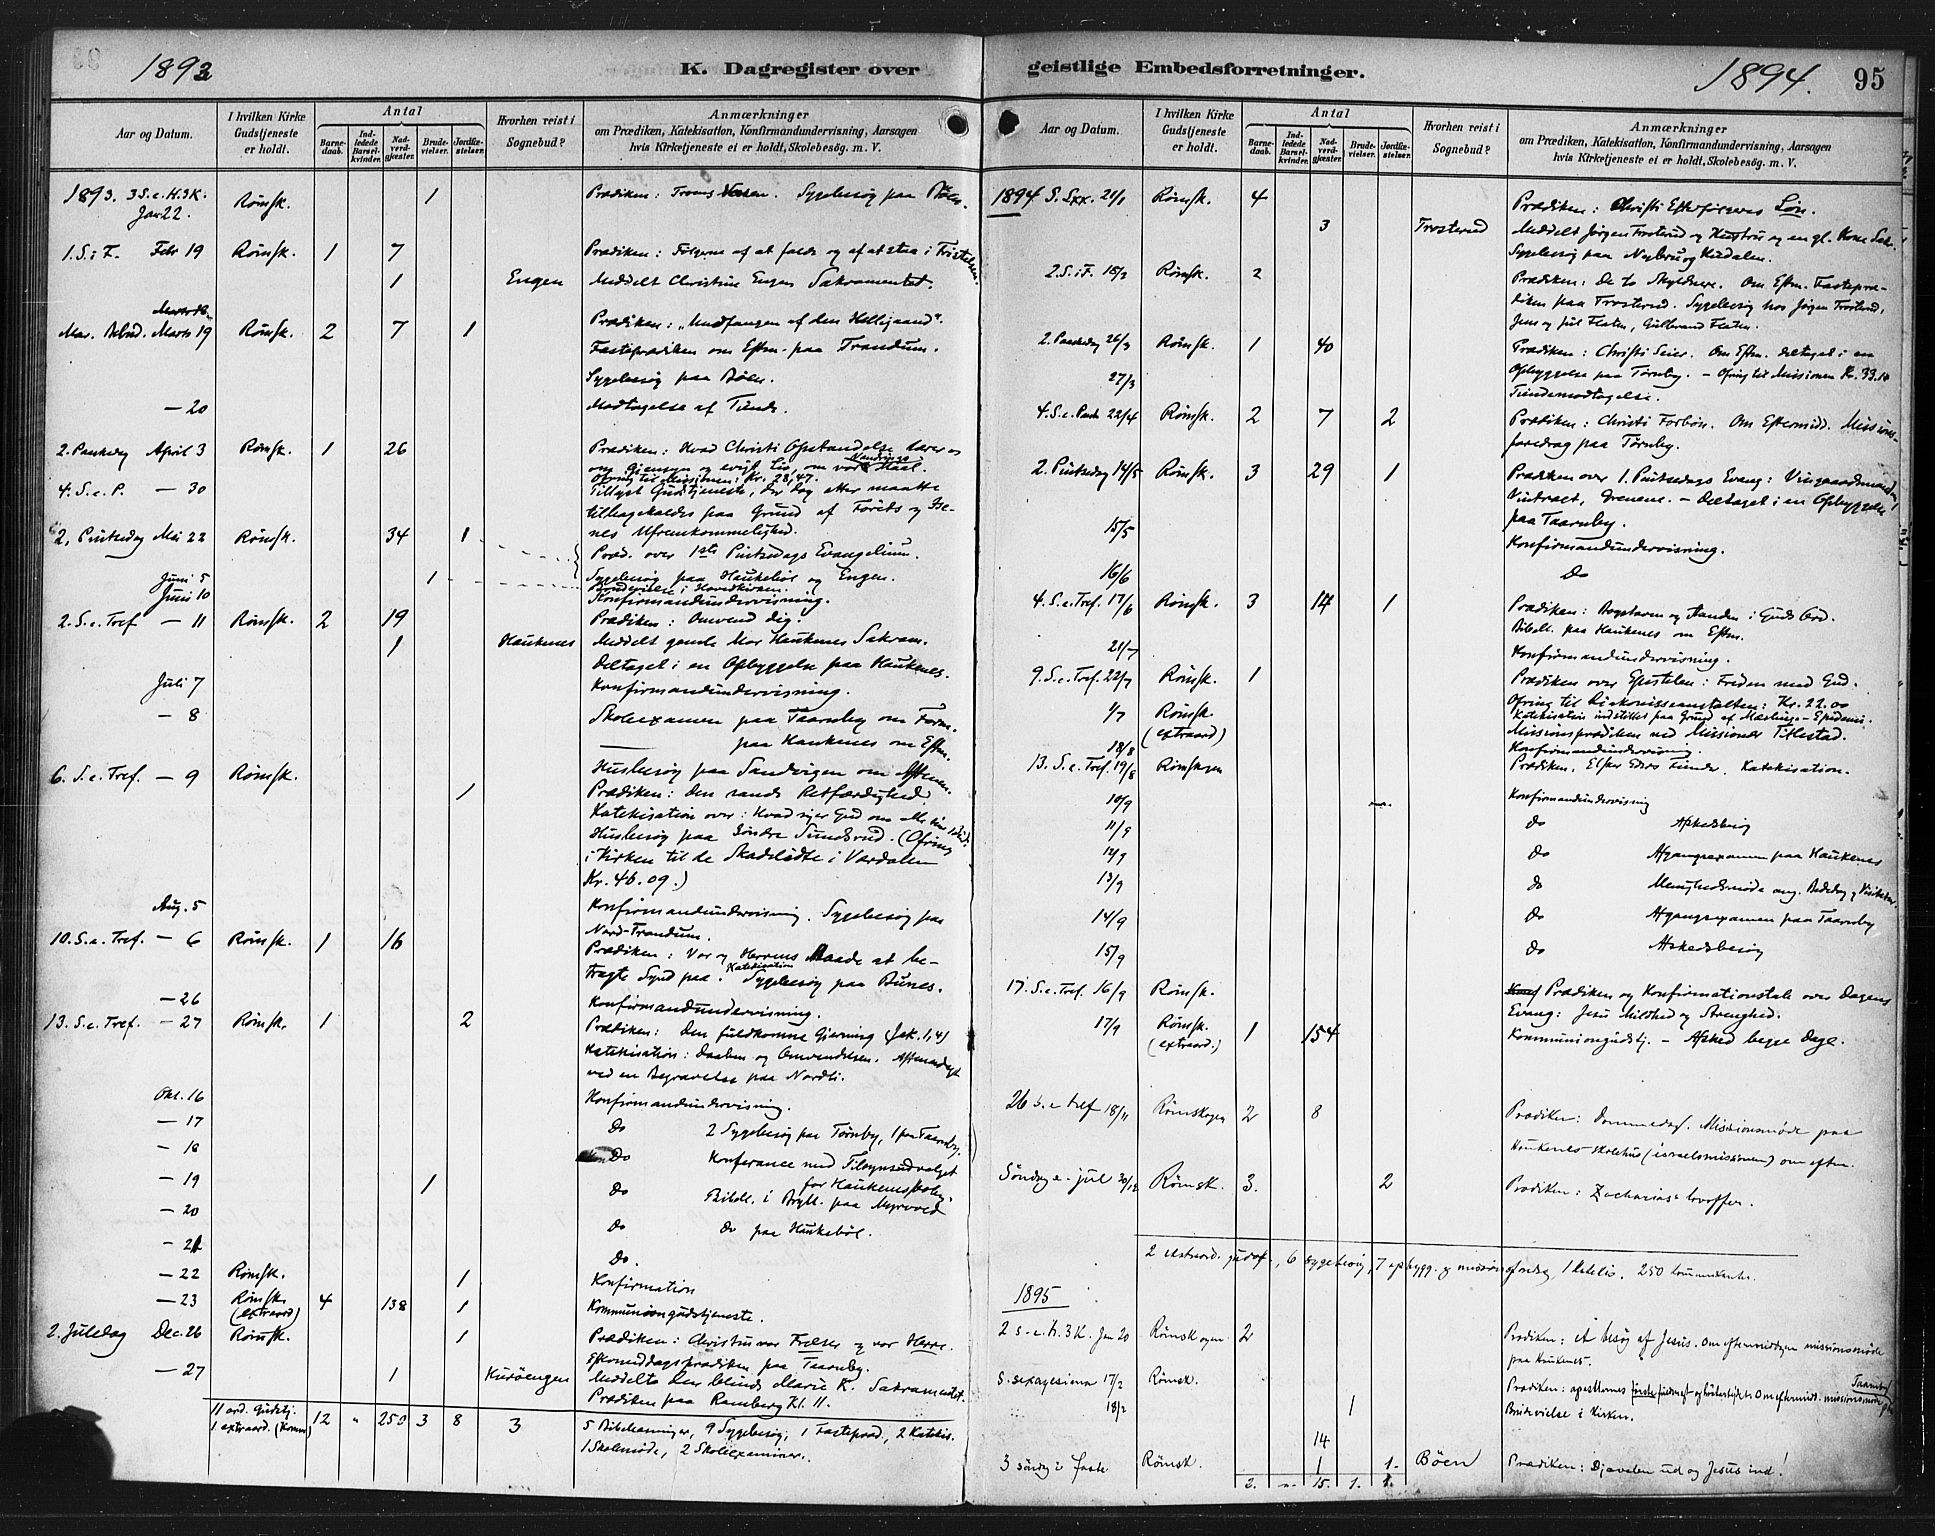 1893
K. Dagregister over
Aar og Datum.
I hvilken Kirke Gudstjeneste er holdt.
Antal
Barnedaab.
Indledede Barselkvinder.
Nadverdgjæster.
Brudevielser.
Jordfæstelser.
Hvorhen reist i Sognebud?
Anmærkninger
om Prædiken, Katekisation, Konfirmandundervisning, Aarsagen
hvis Kirketjeneste ei er holdt, Skolebesög. m. V.
1893. 3 S. e. H. 3 K. Jan 22. Römsk. 1 Prædiken: Sygebesög paa
1. S. i F. Febr 19 Römsk. 1 7 Prædiken: Fölgerne af at falde og af at staa i Fristelsen.
1 Engen Meddelt Christine Engen Sakramentet.
Mar. Bebud. Marts 19 Römsk. 2 7 1 Prædiken: „Undfangen af den Helligaand".
Fasteprædiken om Eftm. paa Trandum.
Sygebesög paa Böen.
— 20 Modtagelse af Tiende.
2. Paaskedag April 3 Römsk. 1 26 Prædiken: Hvad Christi Opstandelse lærer os
om Gjensyn og evigt Liv, om vor Vandrings Maal.
Ofring til Missionen: Kr. 28,47.
4. S. e. P. — 30 Tillyst Gudstjeneste, der dog atter maatte
tilbagekaldes paa Grund af Förets og Isenes Ufremkommelighed.
2. Pintsedag Mai 22 Römsk. 34 1 Præd. over 1ste Pintsedags Evangelium.
Sygebesög paa Haukeböl og Engen.
Juni 5 1 Brudevielse i Hovedkirken.
Juni 10 Konfirmandundervisning.
2. S. e. Tref — 11 Römsk. 2 19 Prædiken: Omvend dig.
1 Haukenes Meddelt gamle Mor Haukenes Sakram.
Deltaget i en Opbyggelse paa Haukenes.
Juli 7 Konfirmandundervisning.
— 8 Skoleexamen paa Taarnby om Form.
paa Haukenes om Eftm.
Husbesög paa Sandvigen om Aftenen.
6. S. e. Tref. — 9 Römsk. 1 Prædiken: Den sande Retfærdighed.
Katekisation over: Hvad siger Gud om
Husbesög paa Söndre Sundsrud. (Ofring
i Kirken til de Skadelidte i Værdalen
Kr. 46.09.)
Aug. 5 Konfirmandundervisning. Sygebesög paa
Nord-Trandum.
10. S. e. Tref. — 6 Römsk. 1 16 Prædiken: Vor og Herrens Maade at betragte Synd paa. Katekisation Sygebesög paa Bunes.
— 26 Konfirmandundervisning.
13. S. e. Tref. — 27 Römsk. 1 2 Prædiken: Den fuldkomne Gjerning (Jak. 1,4)
Katekisation: Daaben og Omvendelsen.
ved en Begravelse paa Nordli.
Okt. 16 Konfirmandundervisning.
— 17 Do 2 Sygebesög paa Törnby, 1 paa Taarnby.
— 18 Do Konferance med Tilsynsudvalget
for Haukenes skole.
— 19 1 Do Bibell. i Bryll. paa Myrvold
— 20 Do Do paa Haukeböl.
— 21 Do.
— 22 Römsk. 1 Konfirmation
— 23 Römsk. (extraord) 4 138 1 Kommuniongudstjeneste.
2. Juledag Dec. 26 Römsk. 1 Prædiken: Christus vor Frelser og vor Herre.
Eftermiddagsprædiken paa Taarnby.
— 27 1 Kuröengen Meddelte den blinde Marie K. Sakramentet.
Prædiken paa Ramberg Kl. 11.
11 ord. Gudstj.
1 extraord. (Komm) 12 " 250 3 8 3 5 Bibellæsninger, 9 Sygebesög, 1 Fastepræd., 2 Katekis.
1 Skolemöde, 2 Skoleexaminer.
geistlige Embedsforretninger.
1894.
95
Aar og Datum.
I hvilken Kirke Gudstjeneste er holdt.
Antal
Barnedaab.
Indledede Barselkvinder.
Nadverdgjæster.
Brudevielser.
Jordfæstelser.
Hvorhen reist i Sognebud?
Anmærkninger
om Prædiken, Katekisation, Konfirmandundervisning, Aarsagen
hvis Kirketjeneste ei er holdt, Skolebesög. m. V.
1894 S. Sxx. 21/1 Römsk. 4 Prædiken: Christi Efterfölgeres Lön.
3 Trosterud Meddelt Jörgen Trosterud og Hustru og en gl. Kone Sak.
Sygebesög paa Nybru og
2. S. i F. 18/2 Römsk. 2 Prædiken: De to Skyldnere. Om Eftm. Fasteprædiken paa Trosterud. Sygebesög hos Jörgen Trosterud,
Flaten, Gulbrand Flaten.
2. Paaskedag 26/3 Römsk. 1 40 Prædiken: Christi Seier. Om Eftm. deltaget i en
Opbyggelse paa Törnby. — Ofring til Missionen Kr. 33.10
27/3 Tiendemodtagelse.
4. S. e. Paask 22/4 Römsk. 2 7 2 Prædiken: Christi Forbön. Om Eftermidd. Missionsforedrag paa Törnby.
2. Pintsedag 14/5 Römsk. 3 29 1 Prædiken over 1. Pintsedags Evang: Viingaardsmanden,
Vintræet, Grenene. — Deltaget i en Opbyggelse
paa Taarnby.
15/5 Konfirmandundervisning.
16/6 Do
4. S. e. Tref. 17/6 Römsk. 3 14 1 Prædiken: Bogstaven og Aanden i Guds Ord.
Bibell. paa Haukenes om Eftm.
21/7 Konfirmandundervisning.
9. S. e. Tref. 22/7 Römsk. 1 Prædiken over Epistelen: Freden med Gud.
Ofring til Diakonisseanstalten: Kr. 22.00
Katekisation indstilles paa Grund af Mæslinge-Epidemi.
1/7 Römsk. (extraord) Missionsprædiken ved Missionær Tillestad.
18/8 Konfirmandundervisning.
13. S. e. Tref. 19/8 Römskogen Prædiken. Elsker Eders Fiender. Katekisation.
10/9 Konfirmandundervisning
11/9 Do Afskedsbesög
12/9 Do Afgangsexamen paa Haukenes
13/9 Do Menighedsmöde ang. Bededag og Visitatser
14/9 Do Afgangsexamen paa Taarnby
15/9 Do Afskedsbesög
17. S. e. Tref. 16/9 Römsk. Prædiken og Konfirmationstale over Dagens
Evang: Jesu Mildhed og Strenghed.
17/9 Römsk. (extraord.) 1 154 Kommuniongudstj. — Afsked begge Dage.
26 S. e tref 18/11 Römskogen 2 8 Prædiken: Dommedag. Missionsmöde paa
Haukenes skolehus (israelsmissionen) om eftm.
Söndag e. jul 30/12 Römsk. 3. 2 Prædiken: Zacharias' lovoffer.
2 extraord. gudst., 6 sygebesög, 7 opbygg. og missionsforedrag, 1 katekis. 250 kommunikanter.
1895
2 s. e. h. 3 K. Jan 20 Römskogen 2 Prædiken: Et besög af Jesus. Om eftermiddagen missionsmöde
paa Haukenes.
S. sexagesima 17/2 Römsk. Prædiken: apostlernes förste og Om eftermidd. missionsmöde paa Taarnby
18/2 1 Brudevielse i Kirken.
14
3 söndag i faste Römsk. 1 1. Böen Prædiken: Djævelen ud og Jesus ind!
2. " 15. 1. 1.